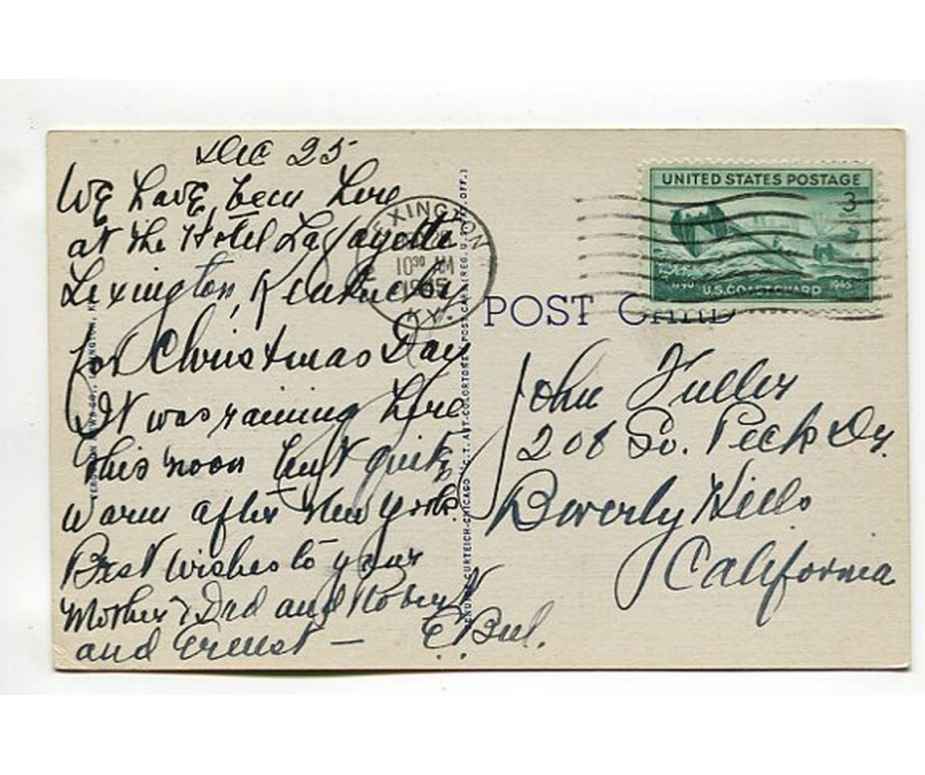 Dec 25
We have been here
at the Hotel Lafayette
Lexington, Kentucky
for Christmas Day
It was raining here
this noon but quite
warm after New York.
Best wishes to your
Mother & Dad and Robert
and Ernest —
UNITED STATES POSTAGE
3
U.S. COAST GUARD
1945
LEXINGTON
10 30 AM
1945
KY.
POST CARD
John Fuller
208 So. Peck Dr.
Beverly Hills
California
CURTEICH-CHICAGO "C.T. ART-COLORTONE" POST CARD (REG. U.S. PAT. OFF.)